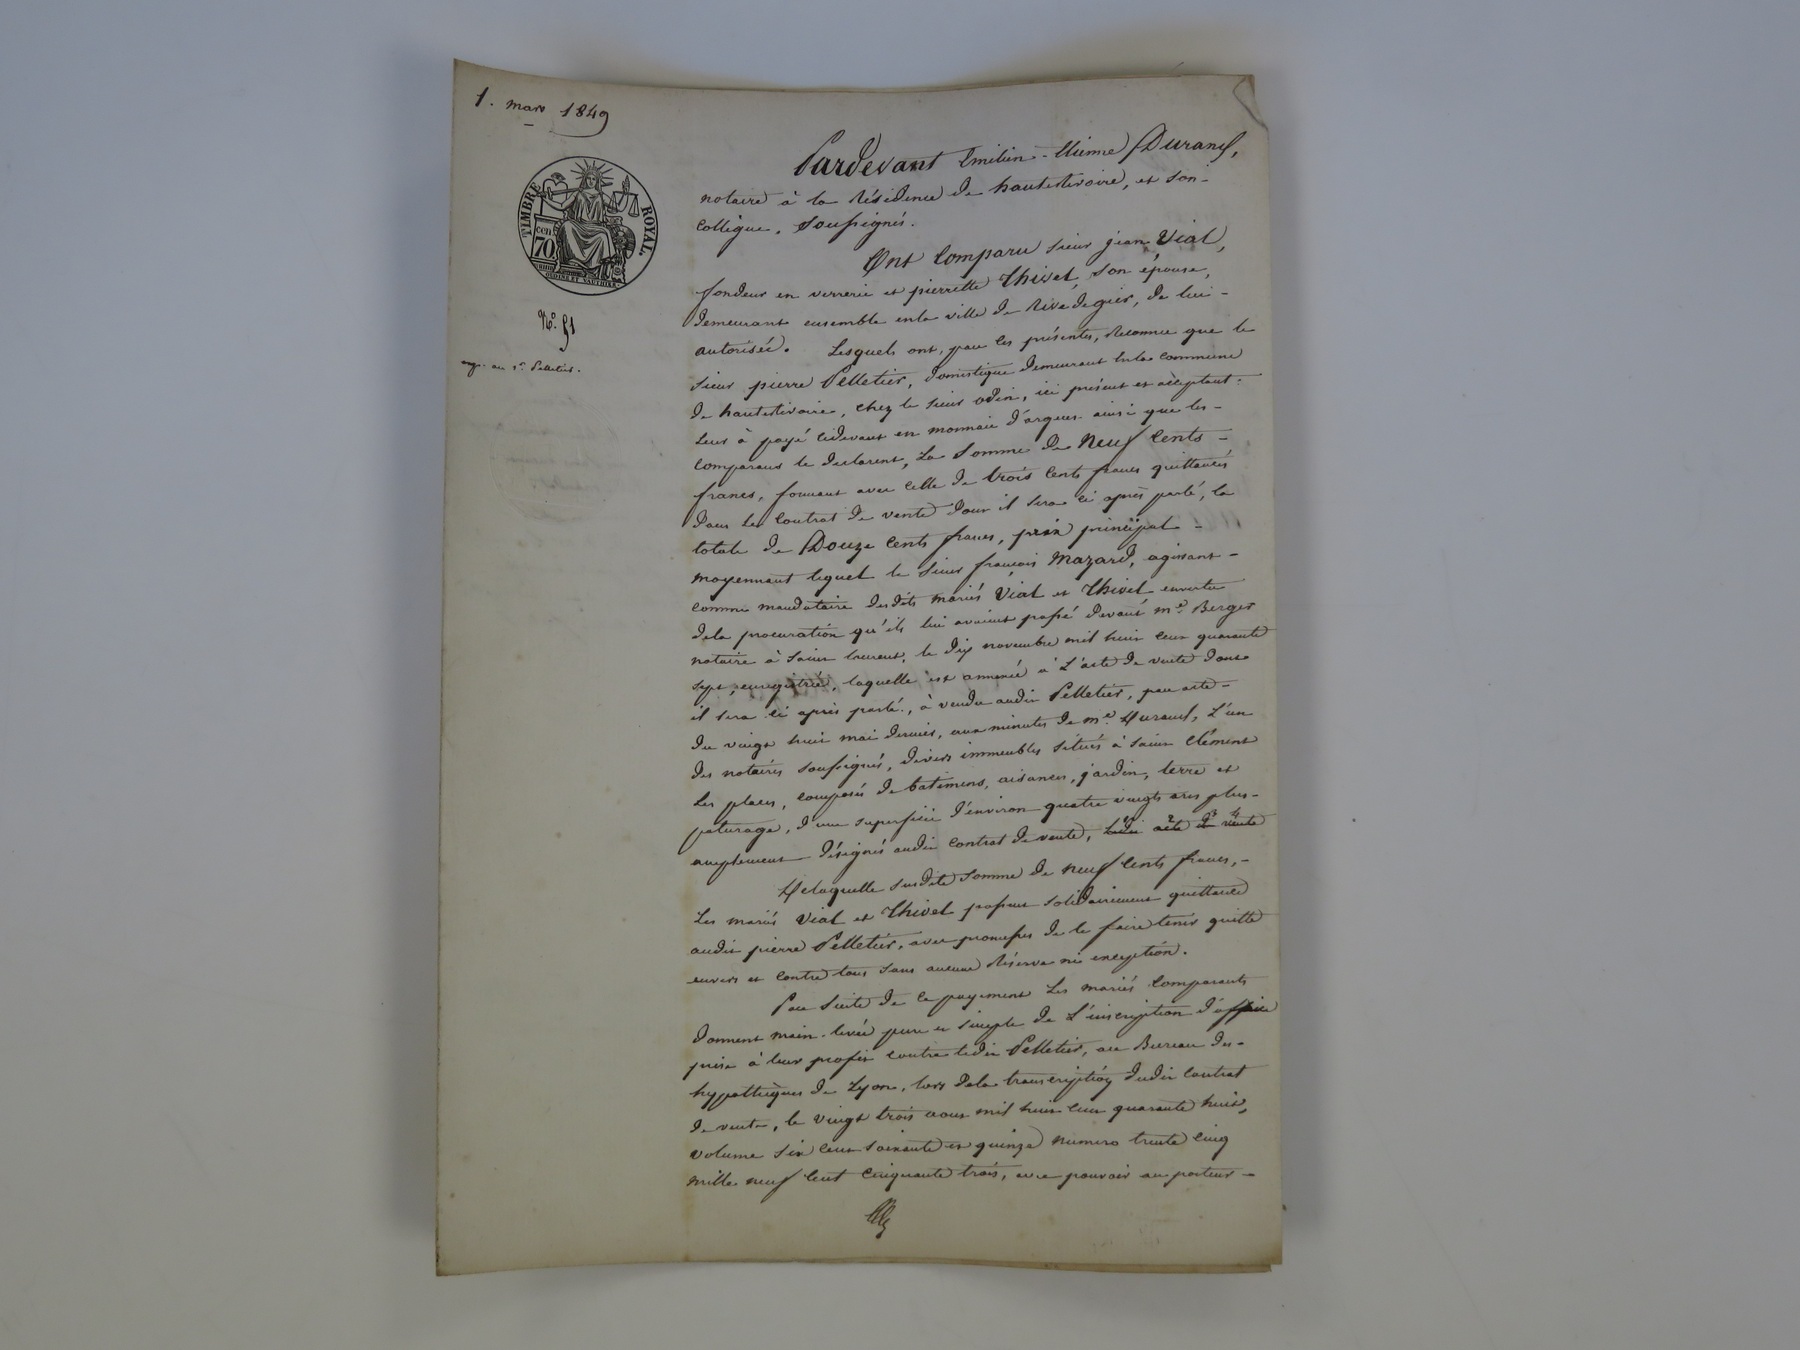 1. mars 1849
TIMBRE ROYAL.
cen
70
N.º 51
exp. au sr. Pelletier.
Pardevant Emilien-Etienne Durand,
notaire à la Résidence de hauterivoire, et son-
collègue, soussignés.
Ont comparu sieur jean Vial,
fondeur en verrerie et pierrette Thivel, son épouse,
demeurant ensemble enla ville de Rive de gier, de lui-
autorisée. Lesquels ont, par ces présentes, Reconnu que le
sieur pierre Pelletier, domestique demeurant enla commune
de hauterivoire, chez le sieur odin, ici présent et acceptant.
Leur à payé cidevant en monnaie d'argent ainsi que les-
comparans le declarent, La Somme de Neuf Cents-
francs, formant avec celle de trois Cents francs quittancés
dans Le Contrat de vente dont il sera ci après parlé, la
totale de Douze cents francs, prix principal-
moyennant lequel le sieur françois Mazard, agissant-
comme mandataire desdits mariés Vial et Thivel envertu
dela procuration qu'ils lui avaient passé devant me. Berger
notaire à Saint Laurent, le dix novembre mil huit cent quarante
sept, enregistrée, laquelle est annexée à L'acte de vente dont
il sera ci après parlé, à vendu audit Pelletier, par acte-
du vingt huit mai dernier, aux minutes de me. Durand, L'un
des notaires soussignés, divers immeubles situés à Saint Clément
Les places, composés de batimens, aisances, jardin, terre et
paturage, d'une superficie d'environ quatre vingts ares plus-
amplement désignés audit contrat de vente, Ledit acte de vente
Delaquelle susdite Somme de Neuf Cents francs,-
Les mariés Vial et Thivel passent solidairement quittance
audit pierre Pelletier, avec promesses de le faire tenir quitte
envers et contre tous sans aucune Réserve ni exception.
Par Suite de ce payement Les mariés Comparants
donnent main-levée pure et simple de L'inscription d'office
prise à leur profit contre ledit Pelletier, au Bureau des-
hypothèques de Lyon, lors dela transcription dudit Contrat
de vente, le vingt trois aout mil huit cent quarante huit,
volume six cent soixante et quinze numero trente cinq
mille neuf cent cinquante trois, avec pouvoir au porteur-